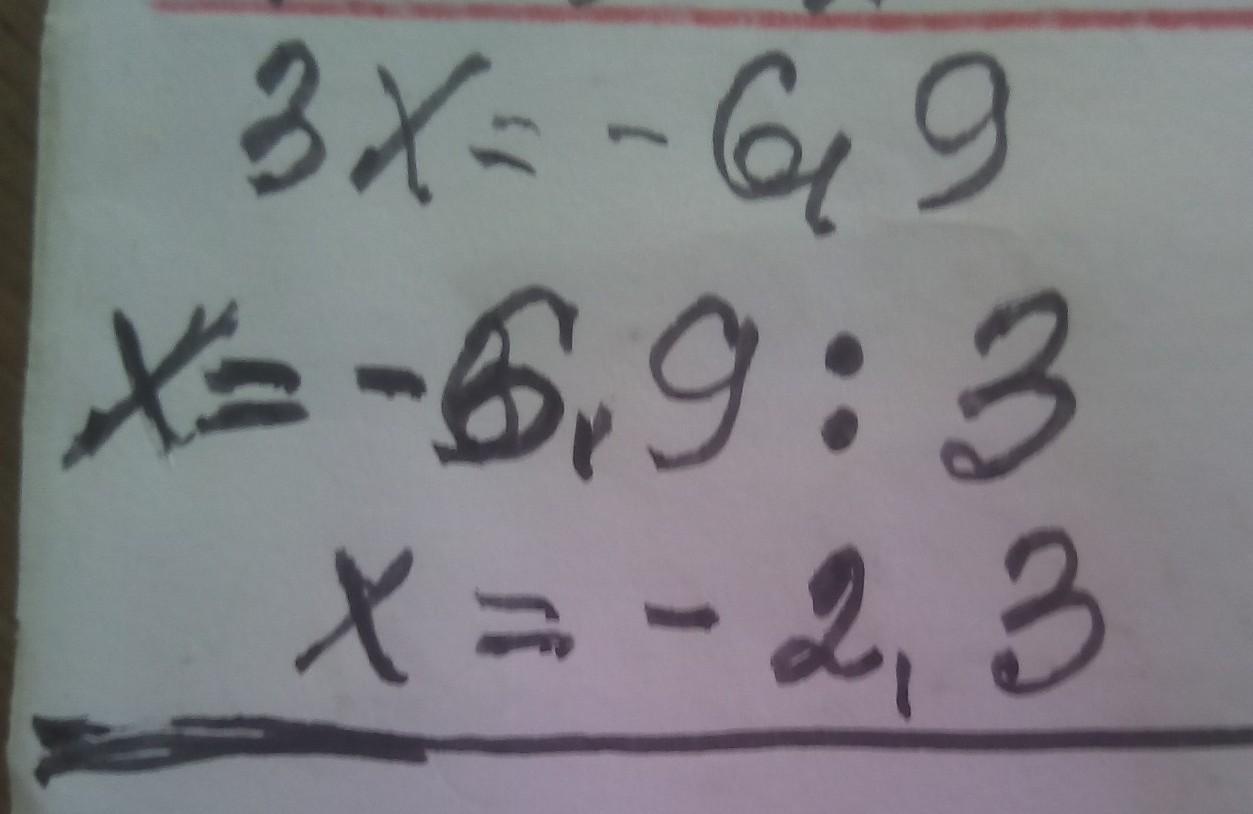 3x = - 6,9
x = - 6,9 : 3
x = - 2,3